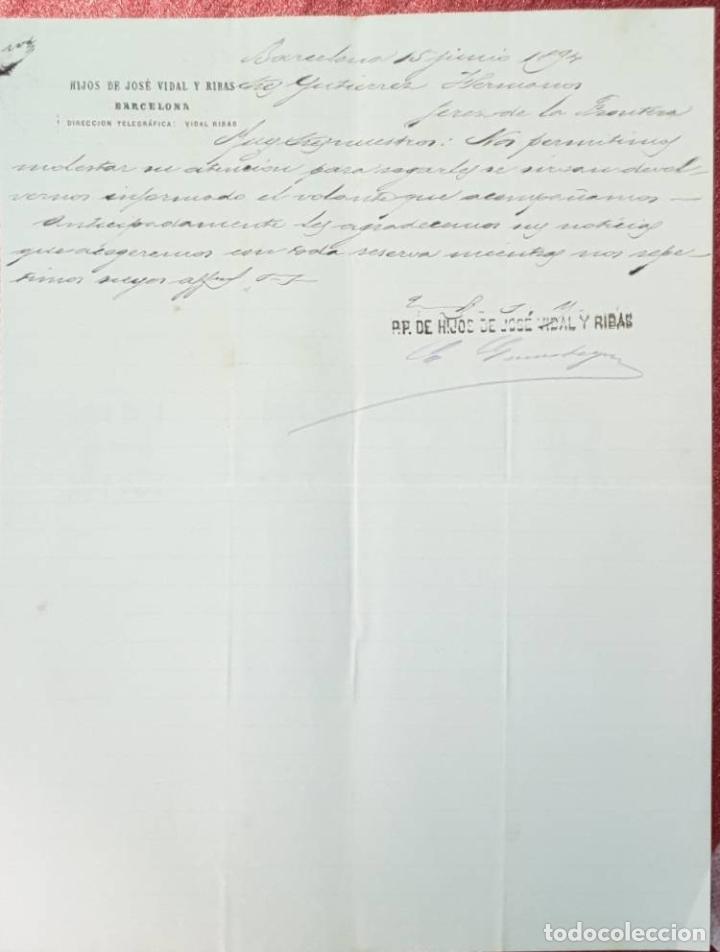 Barcelona 15 junio 1894
HIJOS DE JOSÉ VIDAL Y RIBAS
BARCELONA
DIRECCION TELEGRÁFICA: VIDAL RIBAS
Sres Gutierrez Hermanos
Jerez de la Frontera
Muy Sres nuestros: Nos permitimos
molestar su atencion para rogarles se sirvan devol-
vernos informado el volante que acompañamos —
Anticipadamente les agradecemos sus noticias
que acogeremos con toda reserva mientras nos repe-
timos suyos affmos
P.P. DE HIJOS DE JOSÉ VIDAL Y RIBAS
todocoleccion.net